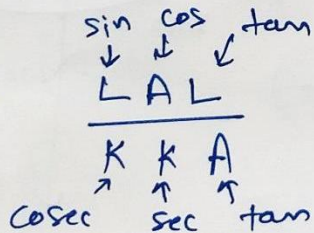 sin cos tan
L A L
K K A
cosec sec tan